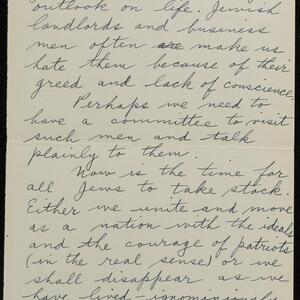 outlook on life. Jewish
landlords and business
men often are make us
hate them because of their
greed and lack of conscience.
Perhaps we need to
have a committee to visit
such men and talk
plainly to them.
Now is the time for
all Jews to take stock.
Either we unite and move
as a nation with the ideals
and the courage of patriots
(in the real sense) or we
shall disappear as we
have lived - ignominiously